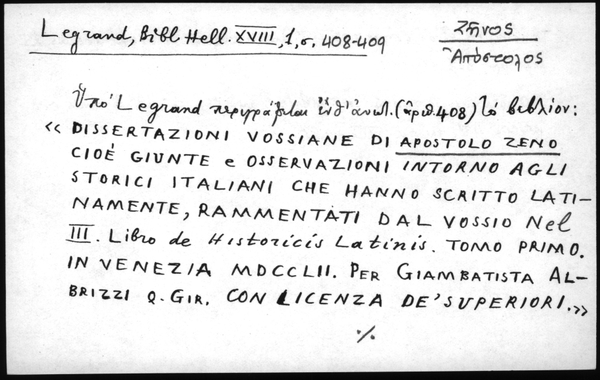 Legrand, Bibl Hell. XVIII, 1, σ. 408-409
Ζῆνος
Ἀπόστολος
Ὑπό Legrand περιγράφεται ἐνθ' ἀνωτ. (ἀριθ. 408) τό βιβλίον:
« DISSERTAZIONI VOSSIANE DI APOSTOLO ZENO
CIOÉ GIUNTE e OSSERVAZIONI INTORNO AGLI
STORICI ITALIANI CHE HANNO SCRITTO LATI-
NAMENTE, RAMMENTATI DAL VOSSIO Nel
III. Libro de Historicis Latinis. TOMO PRIMO.
IN VENEZIA MDCCLII. PER GIAMBATISTA AL-
BRIZZI Q. GIR. CON LICENZA DE' SUPERIORI.»
%